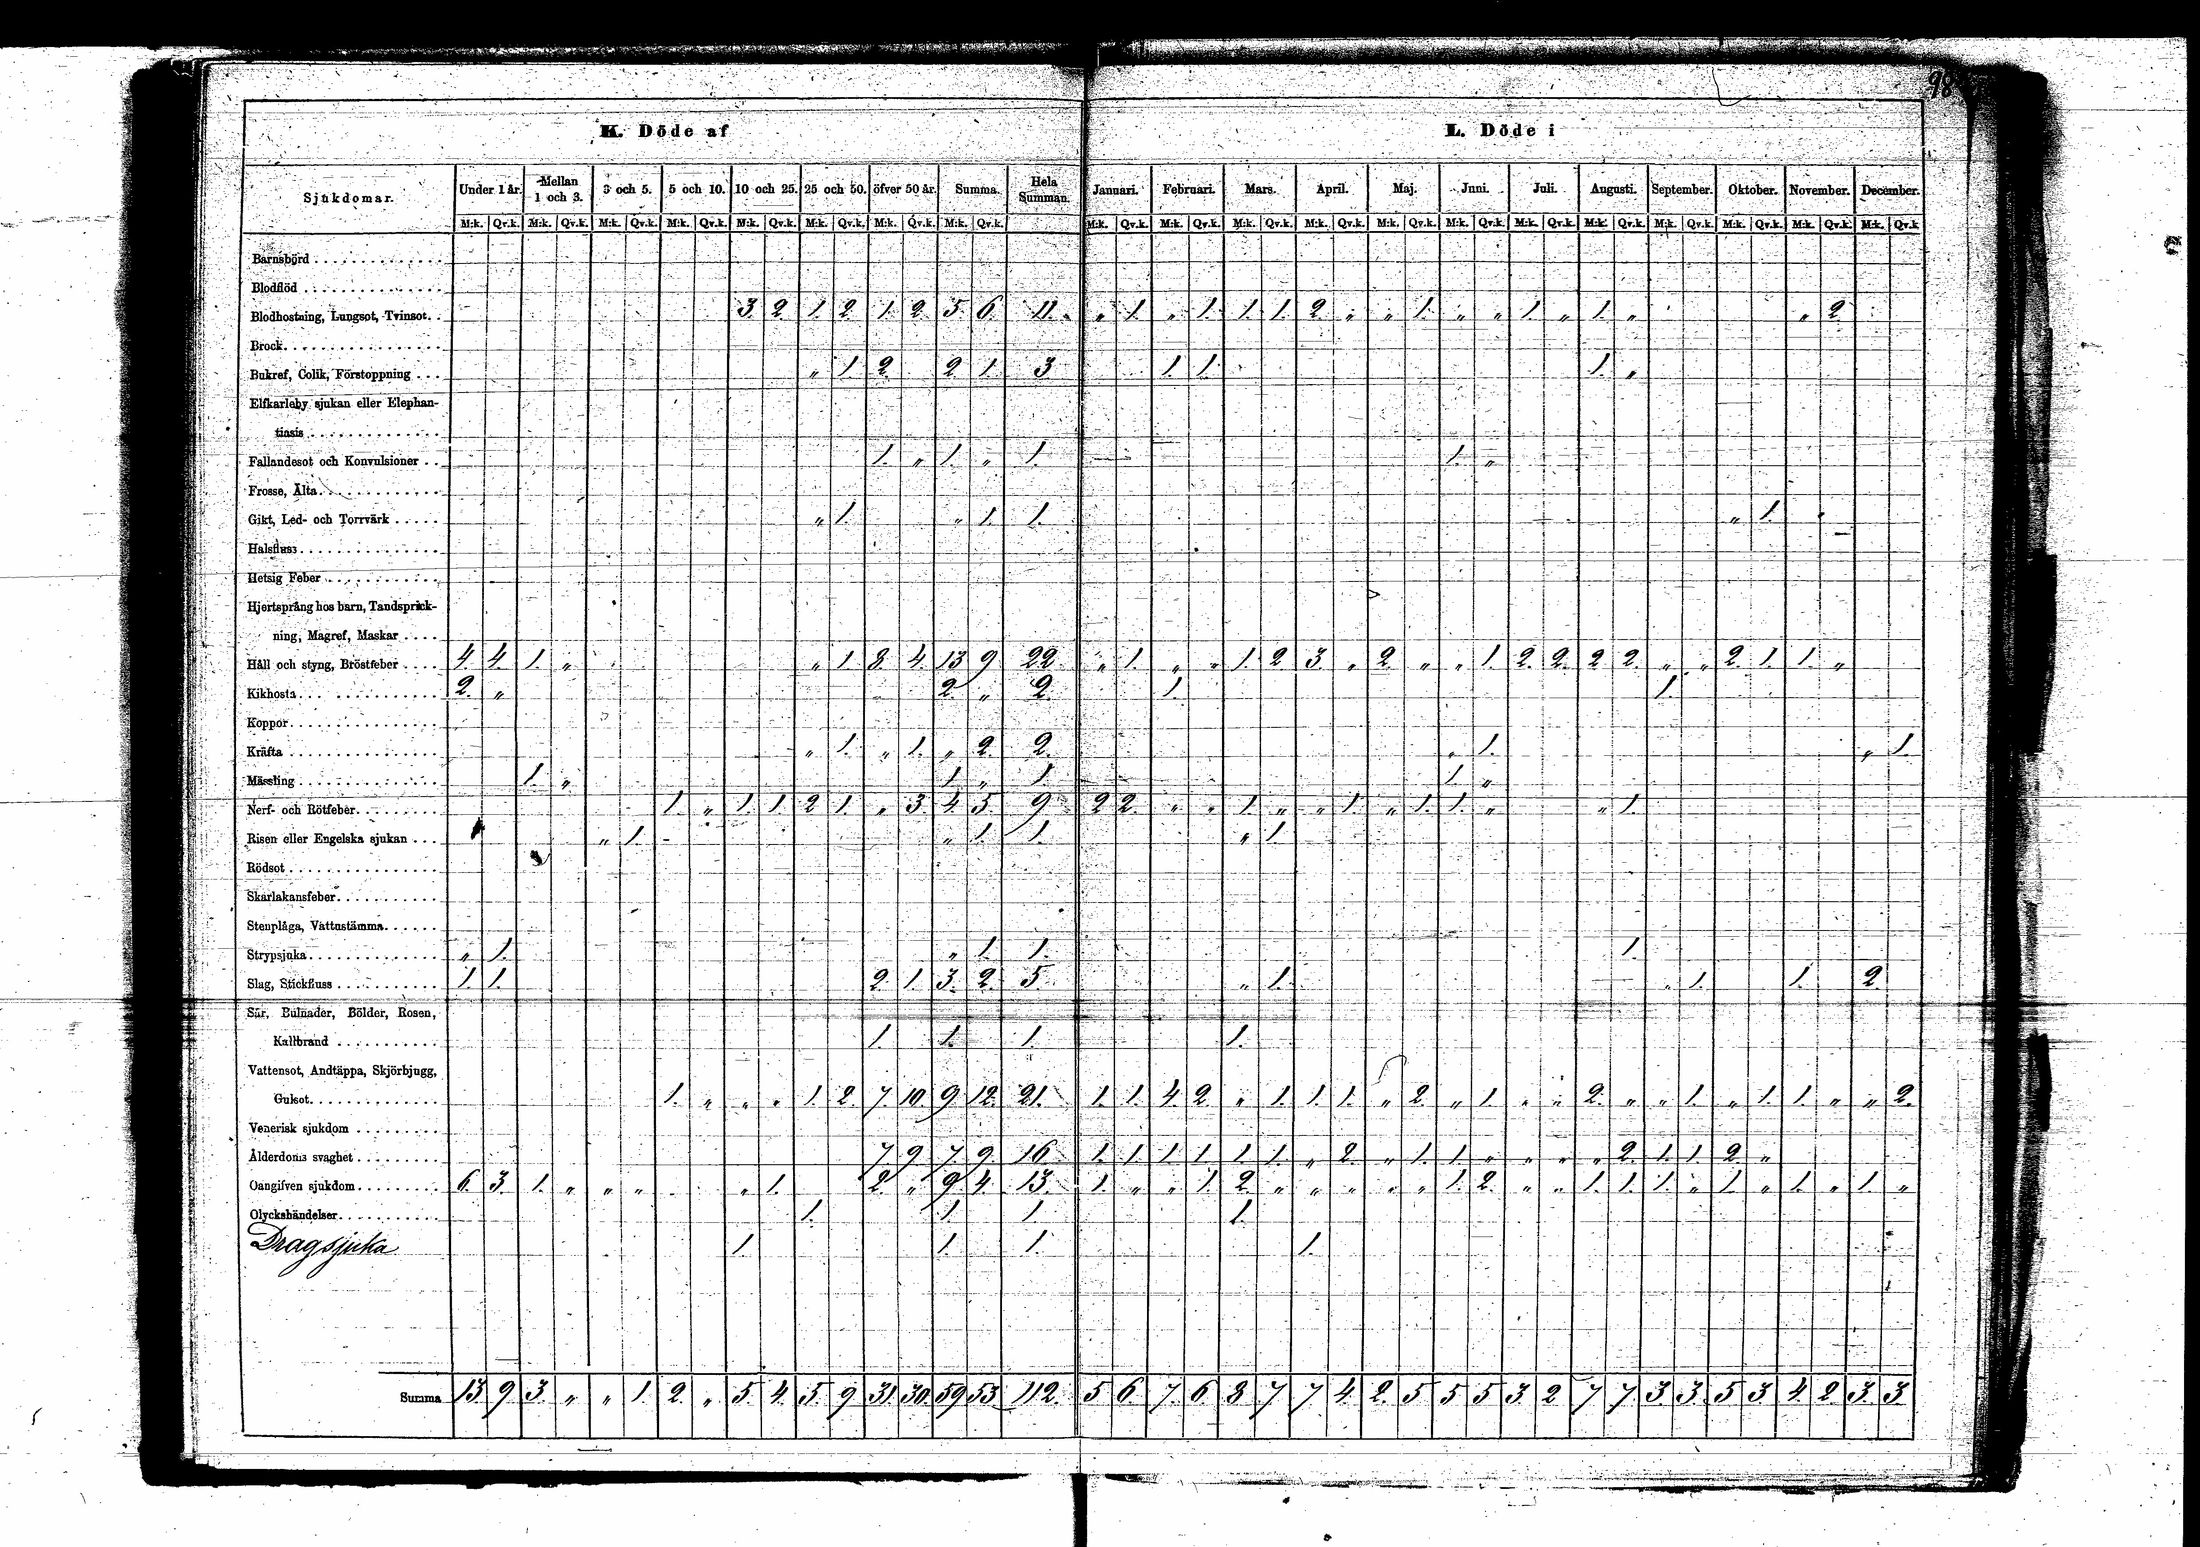 98
K. Döde af L. Döde i
Sjukdomar. Under 1 år. Mellan 1 och 3. 3 och 5. 5 och 10. 10 och 25. 25 och 50. öfver 50 år. Summa. Hela Summan. Januari. Februari. Mars. April. Maj. Juni. Juli. Augusti. September. Oktober. November. December.
M:k. Qv.k. M:k. Qv.k. M:k. Qv.k. M:k. Qv.k. M:k. Qv.k. M:k. Qv.k. M:k. Qv.k. M:k. Qv.k. M:k. Qv.k. M:k. Qv.k. M:k. Qv.k. M:k. Qv.k. M:k. Qv.k. M:k. Qv.k. M:k. Qv.k. M:k. Qv.k. M:k. Qv.k. M:k. Qv.k. M:k. Qv.k. M:k. Qv.k
Barnsbörd
Blodflöd
Blodhostning, Lungsot, Tvinsot. 3. 2. 1. 2. 1. 2. 5. 6. 11. „ 1. „ 1. 1. 1. 2. „ „ 1. „ „ 1. „ 1. „ „ 2.
Brock
Bukref, Colik, Förstoppning „ 1. 2. 2. 1. 3 1. 1. 1. „
Elfkarleby sjukan eller Elephan-
tiasis
Fallandesot och Konvulsioner 1. „ 1. „ 1. 1. „
Frosse, Älta
Gikt, Led- och Torrvärk „ 1. „ 1. 1. „ 1.
Halsfluss
Hetsig Feber
Hjertsprång hos barn, Tandsprick-
ning, Magref, Maskar
Håll och styng, Bröstfeber 4. 4. 1. „ „ 1. 8. 4. 13 9. 22 „ 1. „ „ 1. 2 3. „ 2. „ „ 1. 2. 2. 2. 2. „ „ 2. 1. 1. „
Kikhosta 2. „ 2. „ 2. 1. 1.
Koppor
Kräfta „ 1. „ 1. „ 2. 2. „ 1. „ 1.
Mässling 1. „ 1. „ 1. 1. „
Nerf- och Rötfeber 1. „ 1. 1. 2. 1. „ 3. 4. 5. 9 2 2. „ „ 1. „ „ 1. „ 1. 1. „ „ 1.
Risen eller Engelska sjukan „ 1. „ 1. 1. „ 1.
Rödsot
Skarlakansfeber
Stenplåga, Vattustämma
Strypsjuka „ 1. „ 1. 1. 1.
Slag, Stickfluss 1. 1. 2. 1. 3. 2. 5. „ 1. „ 1. 1. 2.
Sår, Bulnader, Bölder, Rosen,
Kallbrand 1. 1. 1. 1.
Vattensot, Andtäppa, Skjörbjugg,
Gulsot 1. „ „ „ 1. 2. 7. 10. 9. 12. 21. 1. 1. 4. 2. „ 1. 1. 1. „ 2. „ 1. „ „ 2. „ „ 1. „ 1. 1. „ „ 2.
Venerisk sjukdom
Ålderdoms svaghet 7 9. 7 9. 16 1. 1. 1. 1. 1. 1. „ 2. „ 1. 1. „ „ „ „ 2. 1. 1. 2. „
Oangifven sjukdom 6. 3. 1. „ „ „ „ 1. 2. „ 9. 4. 13. 1. „ „ 1. 2. „ „ „ „ „ 1. 2. „ „ 1. 1. 1. „ 1. „ 1. „ 1. „
Olyckshändelser 1. 1. 1. 1.
Dragsjuka 1. 1. 1. 1.
Summa 13. 9. 3. „ „ 1. 2. „ 5. 4. 5. 9 31. 30. 59. 53. 112. 5 6. 7. 6. 8. 7. 7 4. 2. 5. 5. 5. 3. 2 7. 7. 3. 3. 5. 3. 4. 2. 3. 3.